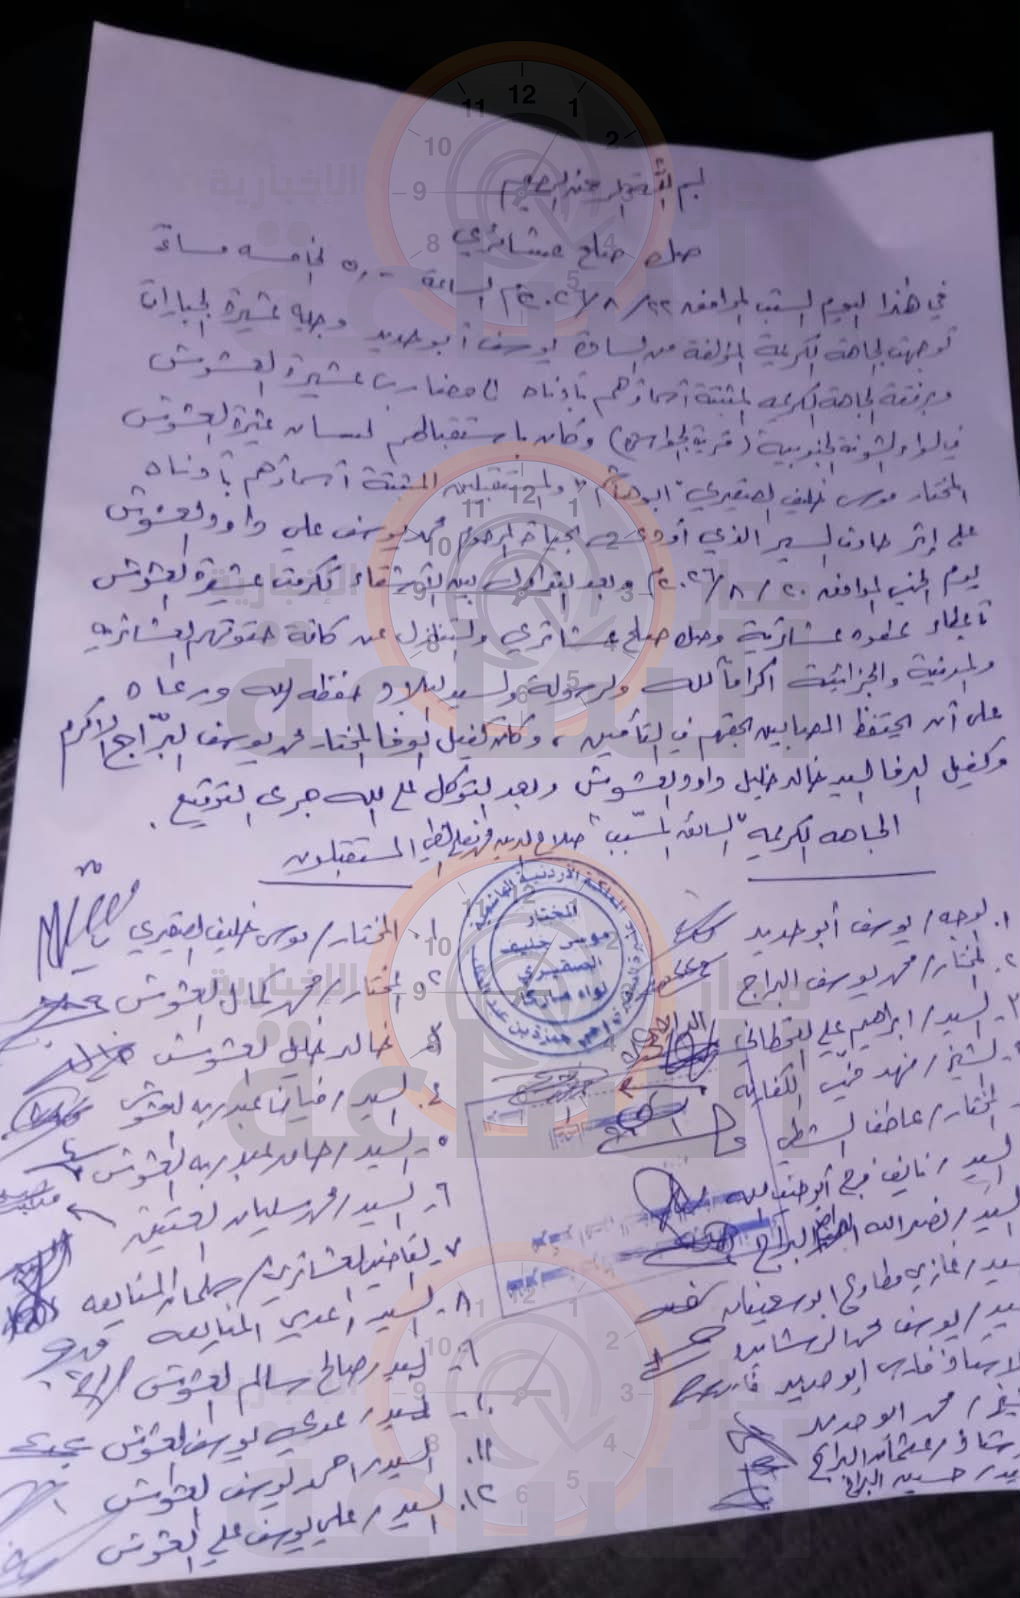 بسم الله الرحمن الرحيم
صك صلح عشائري
في هذا اليوم السبت الموافق ٢٢/٨/٢٠٢٦م الساعة ٥,٠٠ الخامسه مساءً
توجهت الجاهة الكريمة المؤلفة من السادة يوسف أبو حديد وجيه عشيرة الجبارات
وبرفقة الجاهة الكريمه المثبتة أسماؤهم بأدناه الى مضارب عشيرة العشوش
في لواء الشونة الجنوبية (قرية الجواسرة) وكان باستقبالهم لمسان عشيرة العشوش
المختار موسى خليف الصقيري "ابو هنا" والمستقبلين المثبتة أسماؤهم بأدناه
على إثر حادث السير الذي أودى بحياة المرحوم محمد يوسف علي داوود العشوش
يوم الخميس الموافق ٢٠/٨/٢٠٢٦م وبعد التداول بين الأشقاء تكرمت عشيرة العشوش
بأعطاء عطوه عشائرية وصك صلح عشائري والتنازل عن كافة حقوقهم العشائرية
والمدنية والجزائية اكراماً لله ولرسوله ولسيد البلاد حفظه الله ورعاه
على أن يحتفظ المصابين بحقهم في التأمين، وكان كفيل الوفا المختار محمد يوسف البراج الأكرم
وكفيل الدفا السيد خالد خليل داوود العشوش وبعد التوكل على الله جرى التوقيع.
الجاهه الكريمه "السائق المسبب" صلاح الدين المستقبلون
١. الوجه/ يوسف أبو حديد
٢. المختار/ محمد يوسف البراج
٣- السيد/ ابراهيم علي القحطاني
الشيخ/ فهد الكفارنه
المختار/ عاطف الشطي
السيد/ نايف فرج أبو
السيد/ نصرالله البراج
السيد/ غازي مطاوع ابو سفينه
السيد/ يوسف محمد الرشايده
الاستاذ فارس ابو حديد
محمد ابو حديد
عثمان البراج
حسين البراج
١. المختار/ موسى خليف الصقيري
٢. المختار/ محمد كمال العشوش
٣. خالد خليل العشوش
٤. السيد/ ضياء عبدربه العشوش
٥- السيد/ حامد عبدربه العشوش
٦- السيد/ محمد سليمان
٧- القاضي العشائري/ سلمان المنايعه
٨- السيد/ عدي المنايعه
٩- السيد/ صالح سالم العشوش
١٠- السيد/ عدي يوسف العشوش
١١. السيد/ احمد يوسف العشوش
١٢. السيد/ علي يوسف علي العشوش
المملكة الأردنية الهاشمية
المختار
موسى خليف
الصقيري
لواء ماركا
مدار الساعة الإخبارية